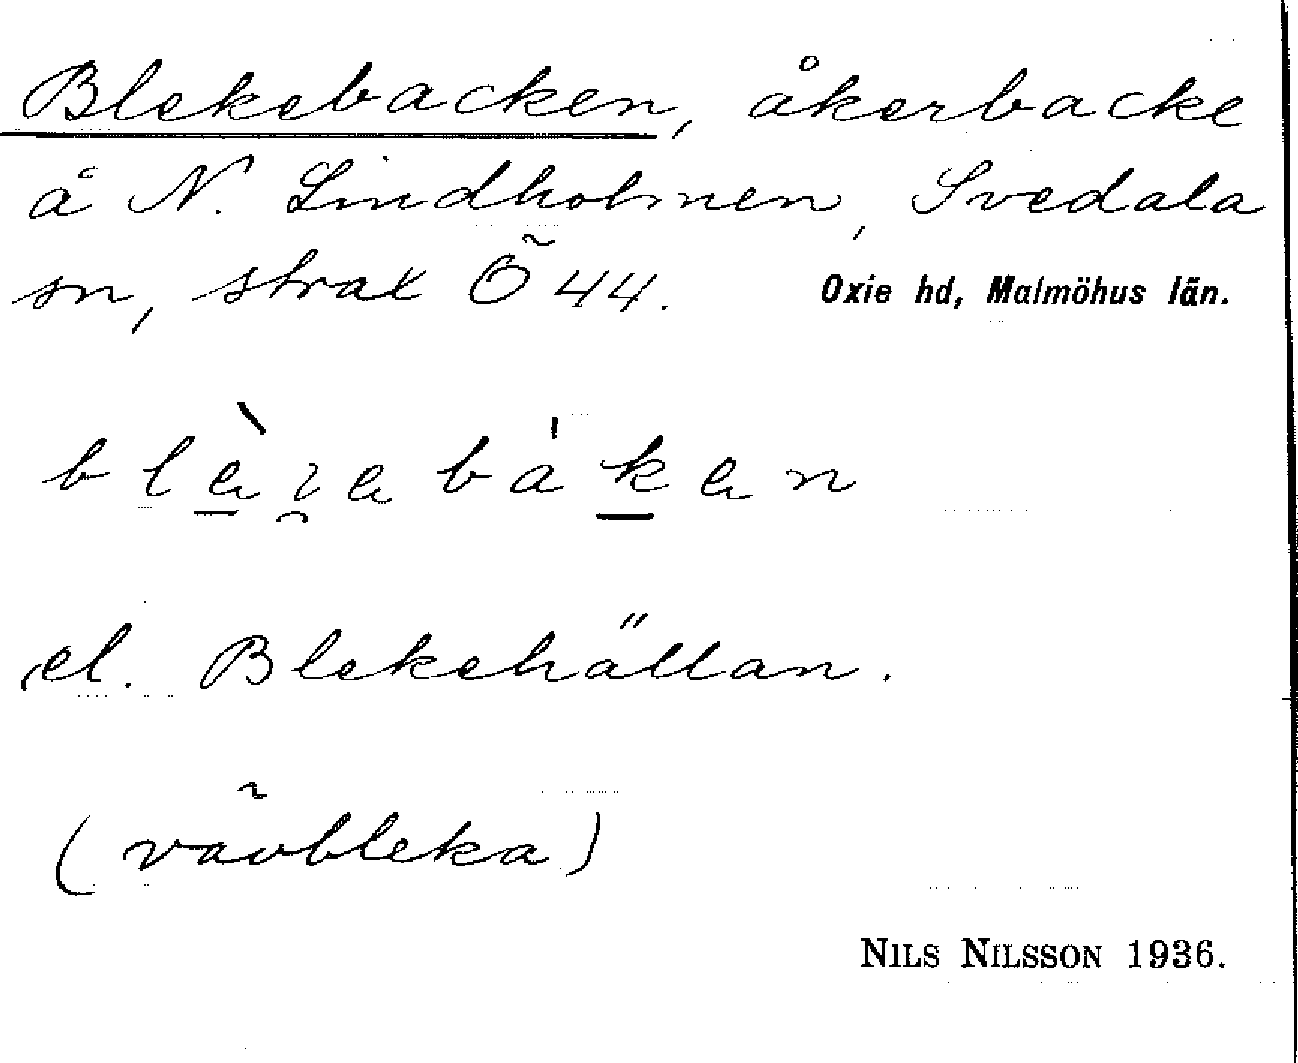 Blekebacken, åkerbacke
å N. Lindholmen, Svedala
sn, strax Ö 44. Oxie hd, Malmöhus län.
el. Blekehällan.
(vävbleka)
NILS NILSSON 1936.